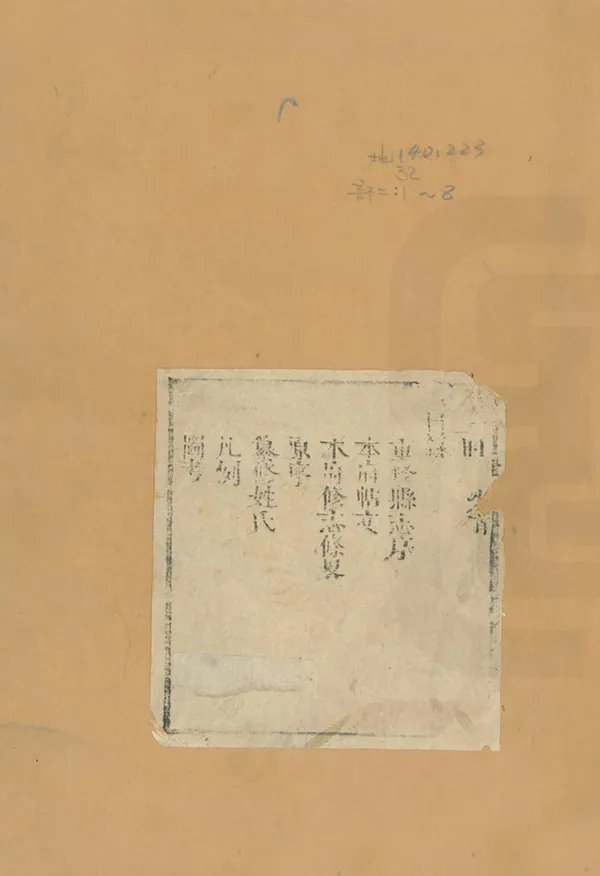 地140.223
32
訂二:1~8
目錄
重修縣志序
本府帖文
本府修志條畧
原序
纂修姓氏
凡例
圖考